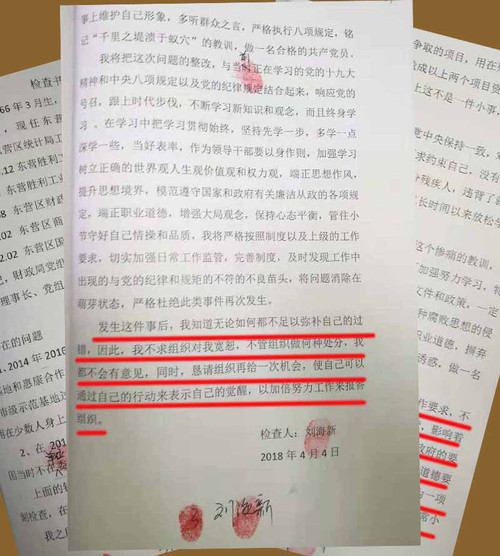 事上维护自己形象，多听群众之言，严格执行八项规定，铭
记“千里之堤溃于蚁穴”的教训，做一名合格的共产党员。
我将把这次问题的整改，与当前正在学习的党的十九大
精神和中央八项规定以及党的纪律规定结合起来，响应党的
号召，跟上时代步伐，不断学习新知识和观念，而且终身学
习。在学习中把学习贯彻始终，坚持先学一步，多学一点
深学一些，当好表率，作为领导干部要以身作则，加强学习
树立正确的世界观人生观价值观和权力观，端正思想作风，
提升思想境界，模范遵守国家和政府有关廉洁从政的各项规
定，端正职业道德，增强大局观念，保持心态平衡，管住小
节守好自己情操和品质，我将严格按照制度以及上级的工作
要求，切实加强日常工作监管，完善制度，及时发现工作中
出现的与党的纪律和规矩的不符的不良苗头，将问题消除在
萌芽状态，严格杜绝此类事件再次发生。
发生这件事后，我知道无论如何都不足以弥补自己的过
错，因此，我不求组织对我宽恕，不管组织做何种处分，我
都不会有意见，同时，恳请组织再给一次机会，使自己可以
通过自己的行动来表示自己的觉醒，以加倍努力工作来报答
组织。
检查人：刘海新
2018年4月4日
刘海新
检查书
66年3月生，
，现任东营
营区统计局工
12 东营胜利工
东营胜利
8 东营区财政
02 东营区商
东营区国
，财政局党组
理事长、党组
在的问题
1．2014年
地和惠康合作
市级示范基地
用在少数人身上
2、在201
因当时不在
上面的
制检查，在
我之
争取的项目，用在
成以上两个项目资
上这不是一件小事，
党中央保持一致，
求约束自己，没有
残疾人，违背了
长时间以来放松学
这个惨痛的教训，
加强努力学习，特
文件和政策，一定
种需腐思想的侵
职业道德，摒弃
诱惑，做一名
作要求，不
，影响着
政府的要
道德要
为一项
常小